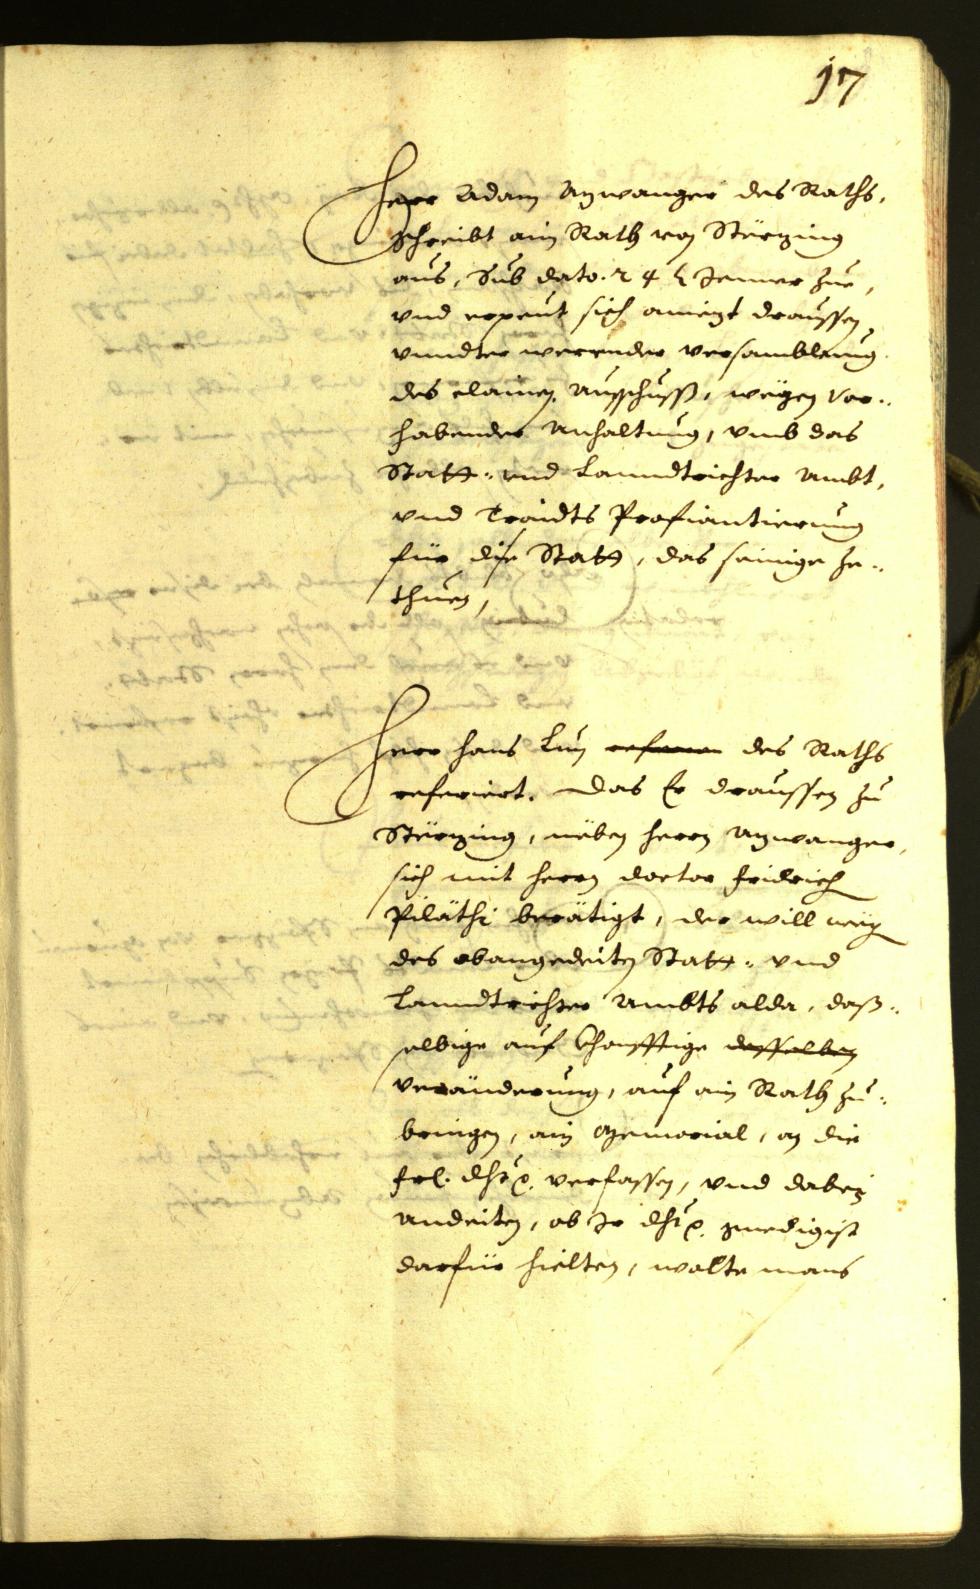 17
Herr Adam Anwanger des Raths,
schreibt ain Rath von Störzing
aus, Sub dato. 24 Jenner zue,
vnd erpeut sich amiezt draussen
vnndter werender versamblung
des clainen Ausschuss, wegen vor-
habender Anhaltung, vmb das
Statt- vnd Lanndtrichter Ambt,
vnd Traidts Profiantierung
für dise Statt, das seinige ze-
thuen,
Herr Hans Lun des Raths
referiert. Das Er draussen zu
Störzing, neben Herrn Anwanger,
sich mit Herrn Doctor Fridrich
Piläthi berätigt, der will weg
des obangedeiten Statt- vnd
Lanndtrichter Ambts alda, dass-
selbige auf khonfftige desselben
veränderung, auf ain Rath zu-
bringen, ain Memorial, an die
frl. dht. verfassen, vnd dabey
andeiten, ob Ir dht. gnedigist
darfür hielten, wolte mans